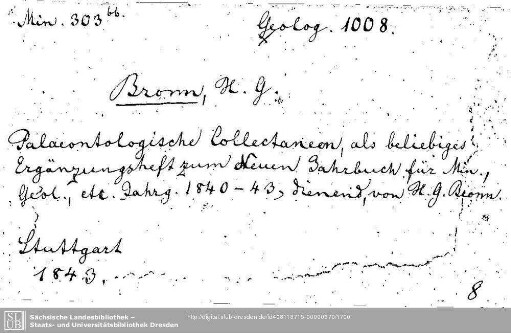 Min. 303 bb.
Geolog. 1008.
Bronn, H. G.
Palaeontologische Collectaneen, als beliebiges
Ergänzungsheft zum Neuen Jahrbuch für Min.,
Geol., etc. Jahrg. 1840-43, dienend, von H. G. Bronn.
Stuttgart
1843.
8
SLUB
Sächsische Landesbibliothek –
Staats- und Universitätsbibliothek Dresden